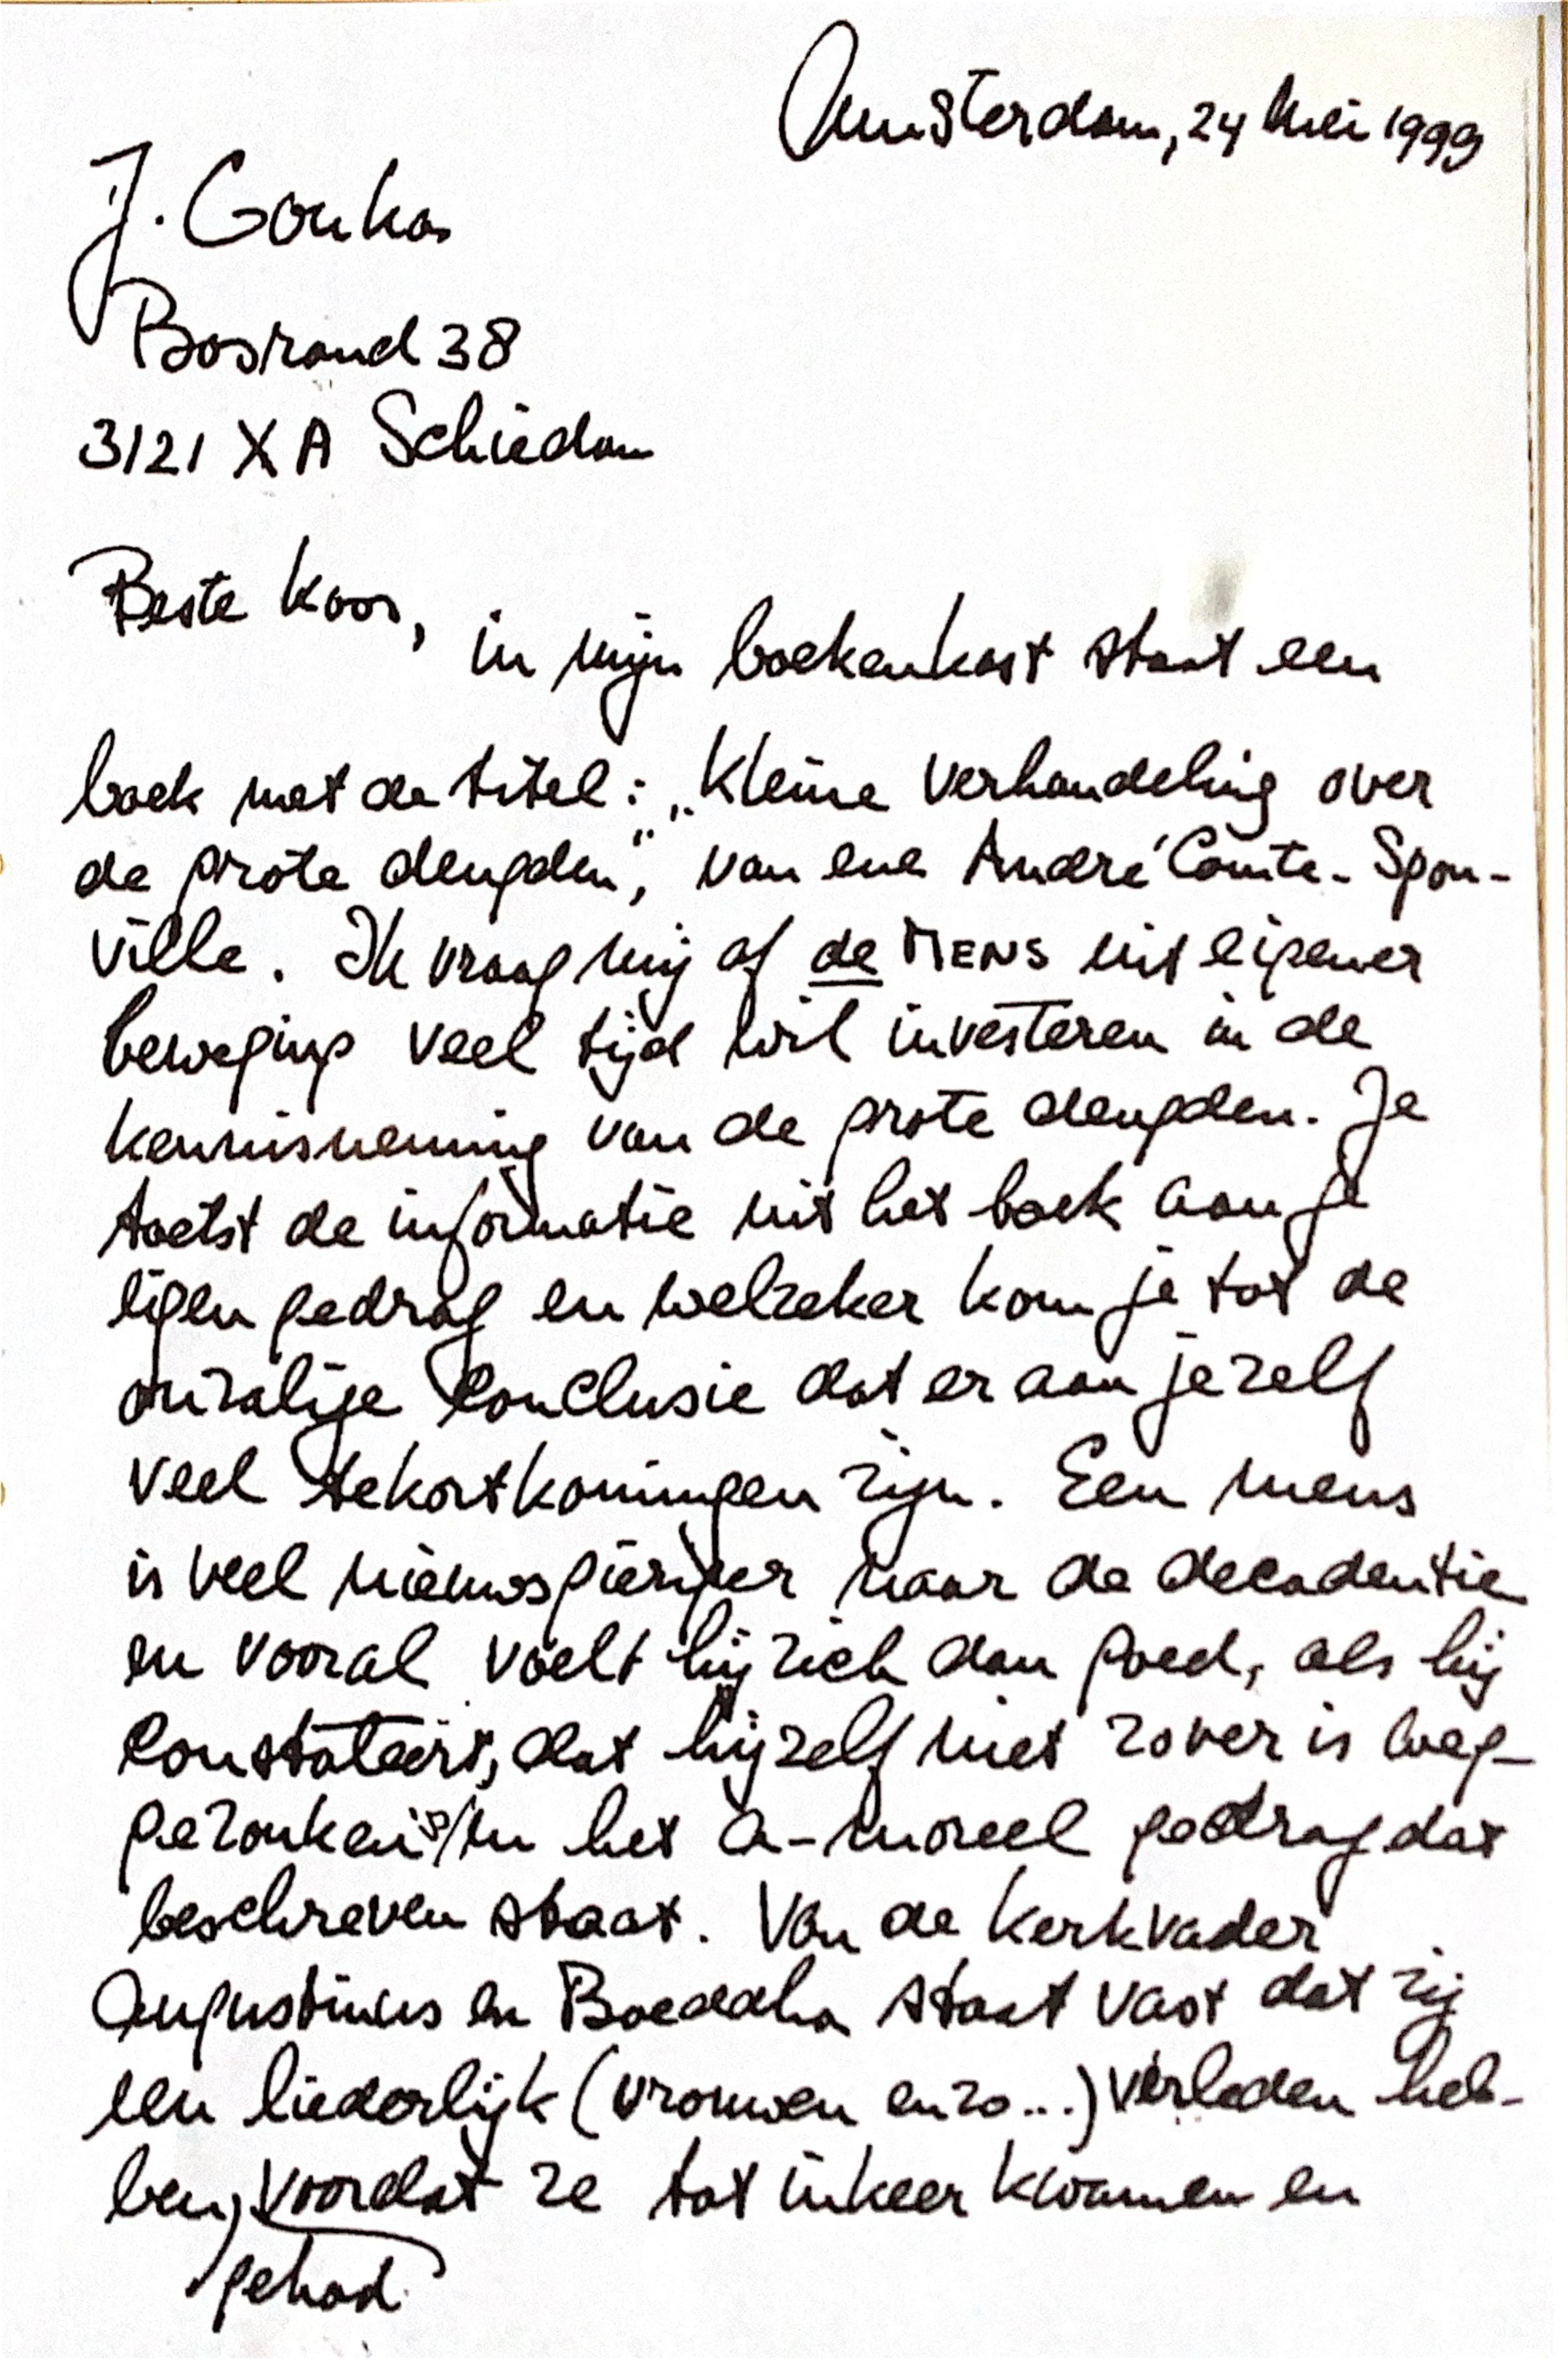 Amsterdam, 24 Mei 1999
J. Gouka
Bosrand 38
3121 XA Schiedam
Beste Koos,
in mijn boekenkast staat een
boek met de titel: „Kleine verhandeling over
de grote deugden", van ene André Comte-Spon-
ville. Ik vraag mij af de MENS uit eigener
beweging veel tijd wil investeren in de
kennisneming van de grote deugden. Je
toetst de informatie uit het boek aan je
eigen gedrag en welzeker kom je tot de
onzalige conclusie dat er aan jezelf
veel tekortkomingen zijn. Een mens
is veel nieuwsgieriger naar de decadentie
en vooral voelt hij zich dan goed, als hij
constateert, dat hijzelf niet zover is weg-
gezonken in het a-moreel gedrag dat
beschreven staat. Van de kerkvader
Augustinus en Boeddha staat vast dat zij
een liederlijk (vrouwen enzo...) verleden heb-
ben, voordat ze tot inkeer kwamen en
gehad